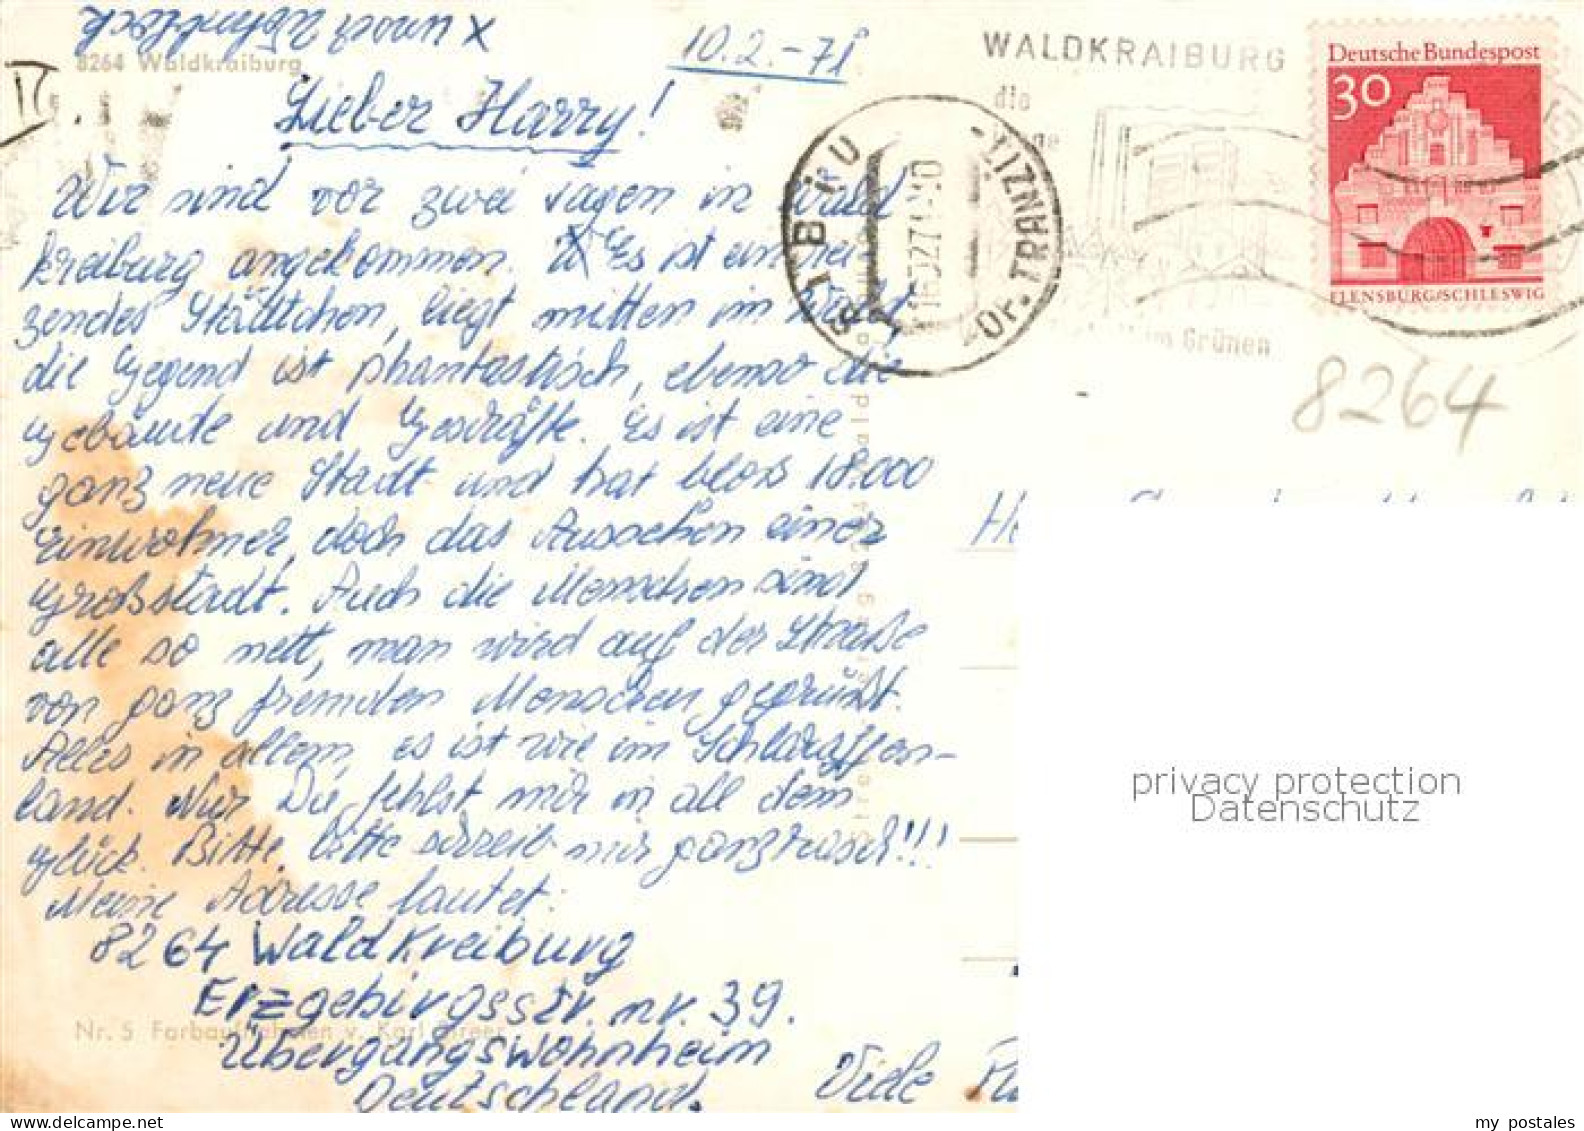 8264 Waldkraiburg
10.2.-71
Lieber Harry!
Wir sind vor zwei Tagen in Wald
kreiburg angekommen. Es ist ein rei-
zendes Städtchen, liegt mitten im Wald,
die Gegend ist phantastisch, ebenso die
Gebäude und Geschäfte. Es ist eine
ganz neue Stadt und hat bloss 18.000
Einwohner, doch das Aussehen einer
Großstadt. Auch die Menschen sind
alle so nett, man wird auf der Straße
von ganz fremden Menschen gegrüßt.
Alles in allem, es ist wie im Schlaraffen-
land. Nur Du fehlst mir in all dem
Glück. Bitte, bitte schreib mir ganz rasch!!!
Meine Adresse lautet:
8264 Waldkreiburg
Erzgebirgsstr. nr. 39.
Übergangswohnheim
Deutschland.
Nr. 5 Farbaufnahmen v. Karl Streer
Viele
WALDKRAIBURG
die
im Grünen
SIBIU
OF. TRNZIT
Deutsche Bundespost
30
FLENSBURG/SCHLESWIG
8264
privacy protection
Datenschutz
my postales